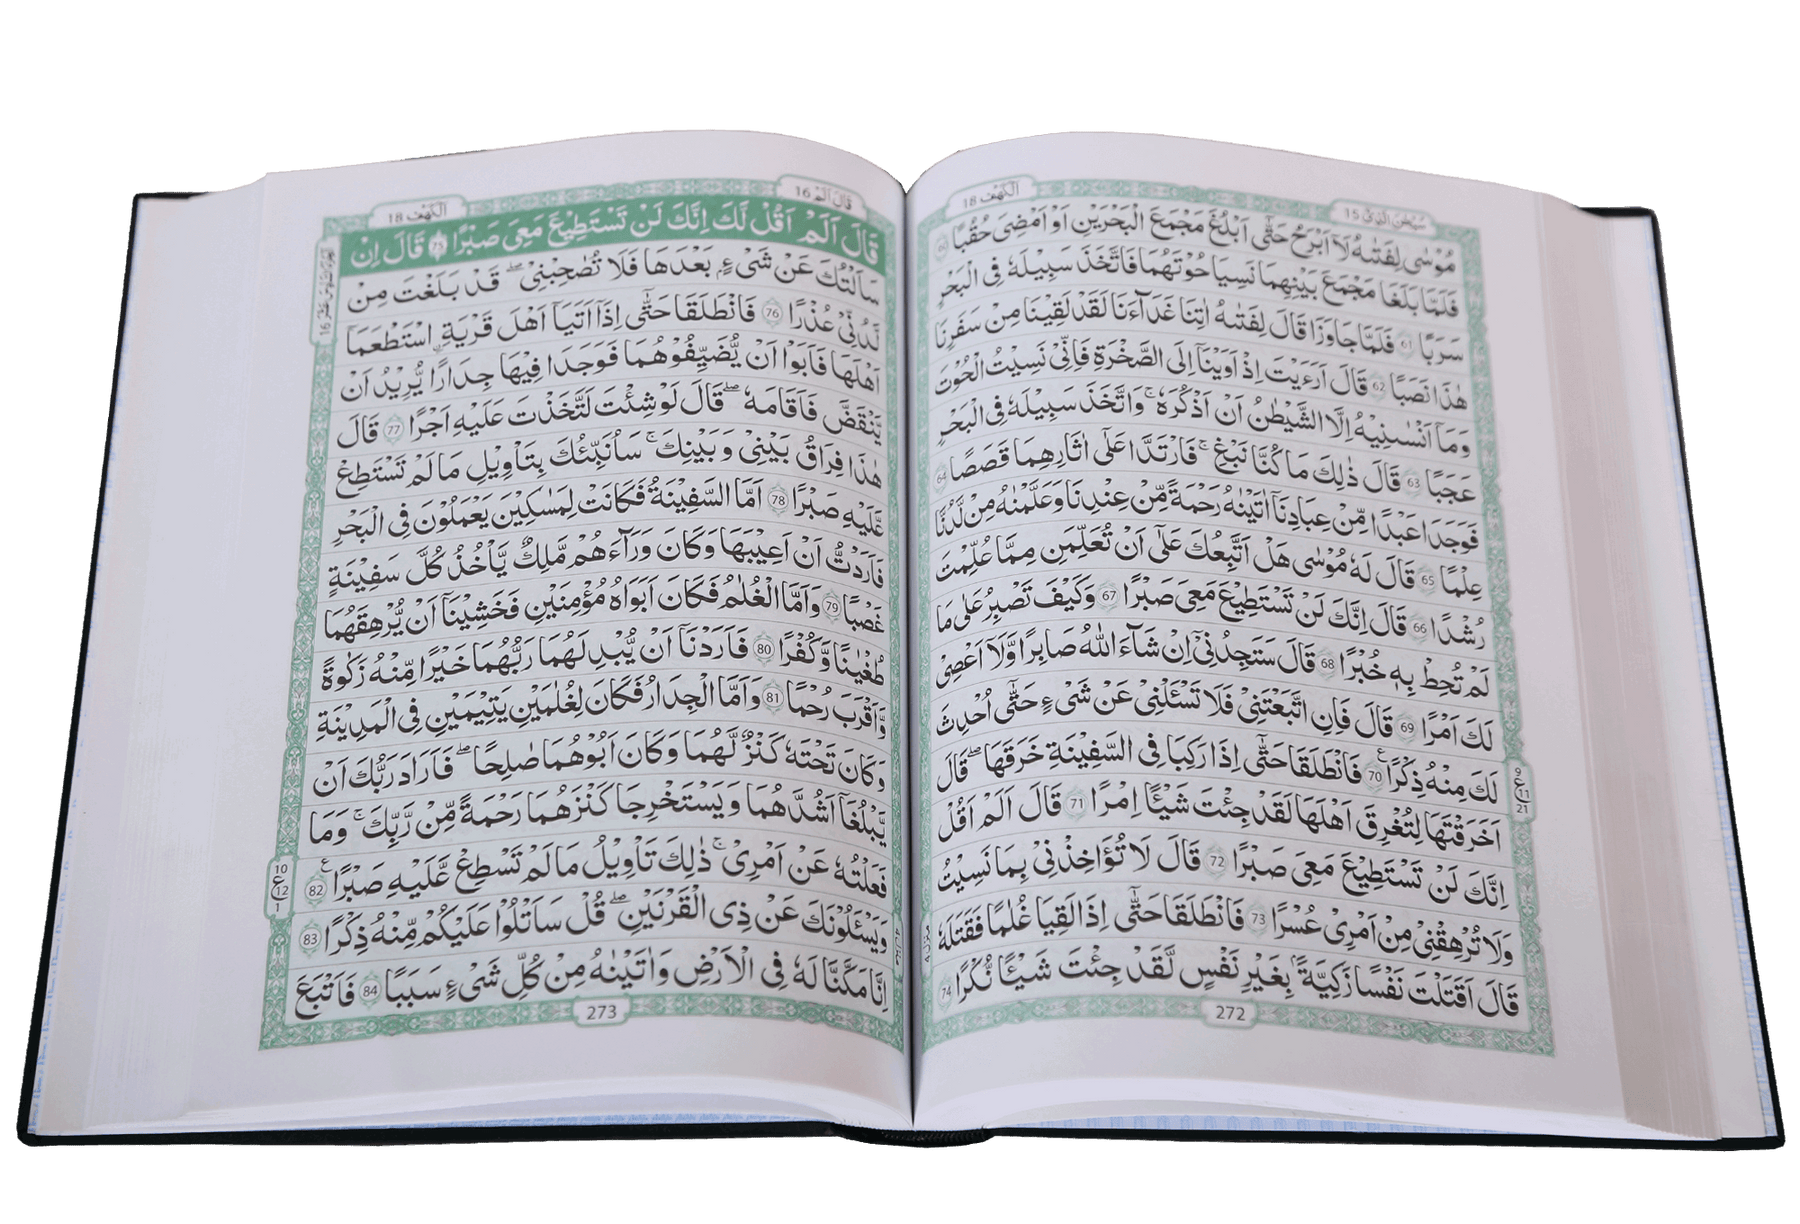 سبحن الذى 15
الكهف 18
مُوْسٰى لِفَتٰىهُ لَاۤ اَبْرَحُ حَتّٰۤى اَبْلُغَ مَجْمَعَ الْبَحْرَيْنِ اَوْ اَمْضِىَ حُقُبًا 60
فَلَمَّا بَلَغَا مَجْمَعَ بَيْنِهِمَا نَسِيَا حُوْتَهُمَا فَاتَّخَذَ سَبِيْلَهٗ فِى الْبَحْرِ
سَرَبًا 61 فَلَمَّا جَاوَزَا قَالَ لِفَتٰىهُ اٰتِنَا غَدَآءَنَا لَقَدْ لَقِيْنَا مِنْ سَفَرِنَا
هٰذَا نَصَبًا 62 قَالَ اَرَءَيْتَ اِذْ اَوَيْنَاۤ اِلَى الصَّخْرَةِ فَاِنِّىْ نَسِيْتُ الْحُوْتَ
وَمَاۤ اَنْسٰىنِيْهُ اِلَّا الشَّيْطٰنُ اَنْ اَذْكُرَهٗ ۚ وَاتَّخَذَ سَبِيْلَهٗ فِى الْبَحْرِ
عَجَبًا 63 قَالَ ذٰلِكَ مَا كُنَّا نَبْغِ ۚ فَارْتَدَّا عَلٰۤى اٰثَارِهِمَا قَصَصًا 64
فَوَجَدَا عَبْدًا مِّنْ عِبَادِنَاۤ اٰتَيْنٰهُ رَحْمَةً مِّنْ عِنْدِنَا وَعَلَّمْنٰهُ مِنْ لَّدُنَّا
عِلْمًا 65 قَالَ لَهٗ مُوْسٰى هَلْ اَتَّبِعُكَ عَلٰۤى اَنْ تُعَلِّمَنِ مِمَّا عُلِّمْتَ
رُشْدًا 66 قَالَ اِنَّكَ لَنْ تَسْتَطِيْعَ مَعِىَ صَبْرًا 67 وَكَيْفَ تَصْبِرُ عَلٰى مَا
لَمْ تُحِطْ بِهٖ خُبْرًا 68 قَالَ سَتَجِدُنِىْۤ اِنْ شَآءَ اللّٰهُ صَابِرًا وَّلَاۤ اَعْصِىْ
لَكَ اَمْرًا 69 قَالَ فَاِنِ اتَّبَعْتَنِىْ فَلَا تَسْـَٔلْنِىْ عَنْ شَىْءٍ حَتّٰۤى اُحْدِثَ
لَكَ مِنْهُ ذِكْرًا 70 فَانْطَلَقَا حَتّٰۤى اِذَا رَكِبَا فِى السَّفِيْنَةِ خَرَقَهَا ؕ قَالَ
اَخَرَقْتَهَا لِتُغْرِقَ اَهْلَهَا لَقَدْ جِئْتَ شَيْـًٔا اِمْرًا 71 قَالَ اَلَمْ اَقُلْ
اِنَّكَ لَنْ تَسْتَطِيْعَ مَعِىَ صَبْرًا 72 قَالَ لَا تُؤَاخِذْنِىْ بِمَا نَسِيْتُ
وَلَا تُرْهِقْنِىْ مِنْ اَمْرِىْ عُسْرًا 73 فَانْطَلَقَا حَتّٰۤى اِذَا لَقِيَا غُلٰمًا فَقَتَلَهٗ
قَالَ اَقَتَلْتَ نَفْسًا زَكِيَّةًۢ بِغَيْرِ نَفْسٍ لَّقَدْ جِئْتَ شَيْـًٔا نُّكْرًا 74
9
ع 11
21
272
قال الم 16
الكهف 18
قَالَ اَلَمْ اَقُلْ لَّكَ اِنَّكَ لَنْ تَسْتَطِيْعَ مَعِىَ صَبْرًا 75 قَالَ اِنْ
سَاَلْتُكَ عَنْ شَىْءٍۢ بَعْدَهَا فَلَا تُصٰحِبْنِىْ ۖ قَدْ بَلَغْتَ مِنْ
لَّدُنِّىْ عُذْرًا 76 فَانْطَلَقَا حَتّٰۤى اِذَاۤ اَتَيَاۤ اَهْلَ قَرْيَةِ اسْتَطْعَمَاۤ
اَهْلَهَا فَاَبَوْا اَنْ يُّضَيِّفُوْهُمَا فَوَجَدَا فِيْهَا جِدَارًا يُّرِيْدُ اَنْ
يَّنْقَضَّ فَاَقَامَهٗ ۖ قَالَ لَوْ شِئْتَ لَتَّخَذْتَ عَلَيْهِ اَجْرًا 77 قَالَ
هٰذَا فِرَاقُ بَيْنِىْ وَبَيْنِكَ ۚ سَاُنَبِّئُكَ بِتَاْوِيْلِ مَا لَمْ تَسْتَطِعْ
عَّلَيْهِ صَبْرًا 78 اَمَّا السَّفِيْنَةُ فَكَانَتْ لِمَسٰكِيْنَ يَعْمَلُوْنَ فِى الْبَحْرِ
فَاَرَدْتُّ اَنْ اَعِيْبَهَا وَكَانَ وَرَآءَهُمْ مَّلِكٌ يَّاْخُذُ كُلَّ سَفِيْنَةٍ
غَصْبًا 79 وَاَمَّا الْغُلٰمُ فَكَانَ اَبَوَاهُ مُؤْمِنَيْنِ فَخَشِيْنَاۤ اَنْ يُّرْهِقَهُمَا
طُغْيٰنًا وَّكُفْرًا 80 فَاَرَدْنَاۤ اَنْ يُّبْدِلَهُمَا رَبُّهُمَا خَيْرًا مِّنْهُ زَكٰوةً
وَّاَقْرَبَ رُحْمًا 81 وَاَمَّا الْجِدَارُ فَكَانَ لِغُلٰمَيْنِ يَتِيْمَيْنِ فِى الْمَدِيْنَةِ
وَكَانَ تَحْتَهٗ كَنْزٌ لَّهُمَا وَكَانَ اَبُوْهُمَا صٰلِحًا ۖ فَاَرَادَ رَبُّكَ اَنْ
يَّبْلُغَاۤ اَشُدَّهُمَا وَيَسْتَخْرِجَا كَنْزَهُمَا رَحْمَةً مِّنْ رَّبِّكَ ۚ وَمَا
فَعَلْتُهٗ عَنْ اَمْرِىْ ؕ ذٰلِكَ تَاْوِيْلُ مَا لَمْ تَسْطِعْ عَّلَيْهِ صَبْرًا 82
وَيَسْـَٔلُوْنَكَ عَنْ ذِى الْقَرْنَيْنِ ۖ قُلْ سَاَتْلُوْا عَلَيْكُمْ مِّنْهُ ذِكْرًا 83
اِنَّا مَكَّنَّا لَهٗ فِى الْاَرْضِ وَاٰتَيْنٰهُ مِنْ كُلِّ شَىْءٍ سَبَبًا 84 فَاَتْبَعَ
10
ع 12
1
273